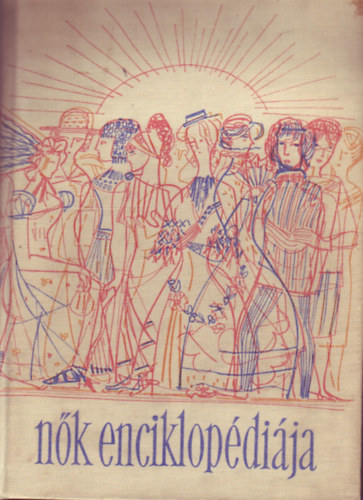 nők enciklopédiája